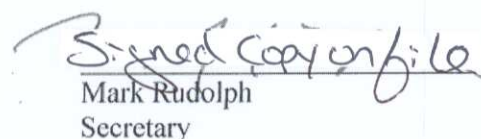 Signed Copy on file
Mark Rudolph
Secretary